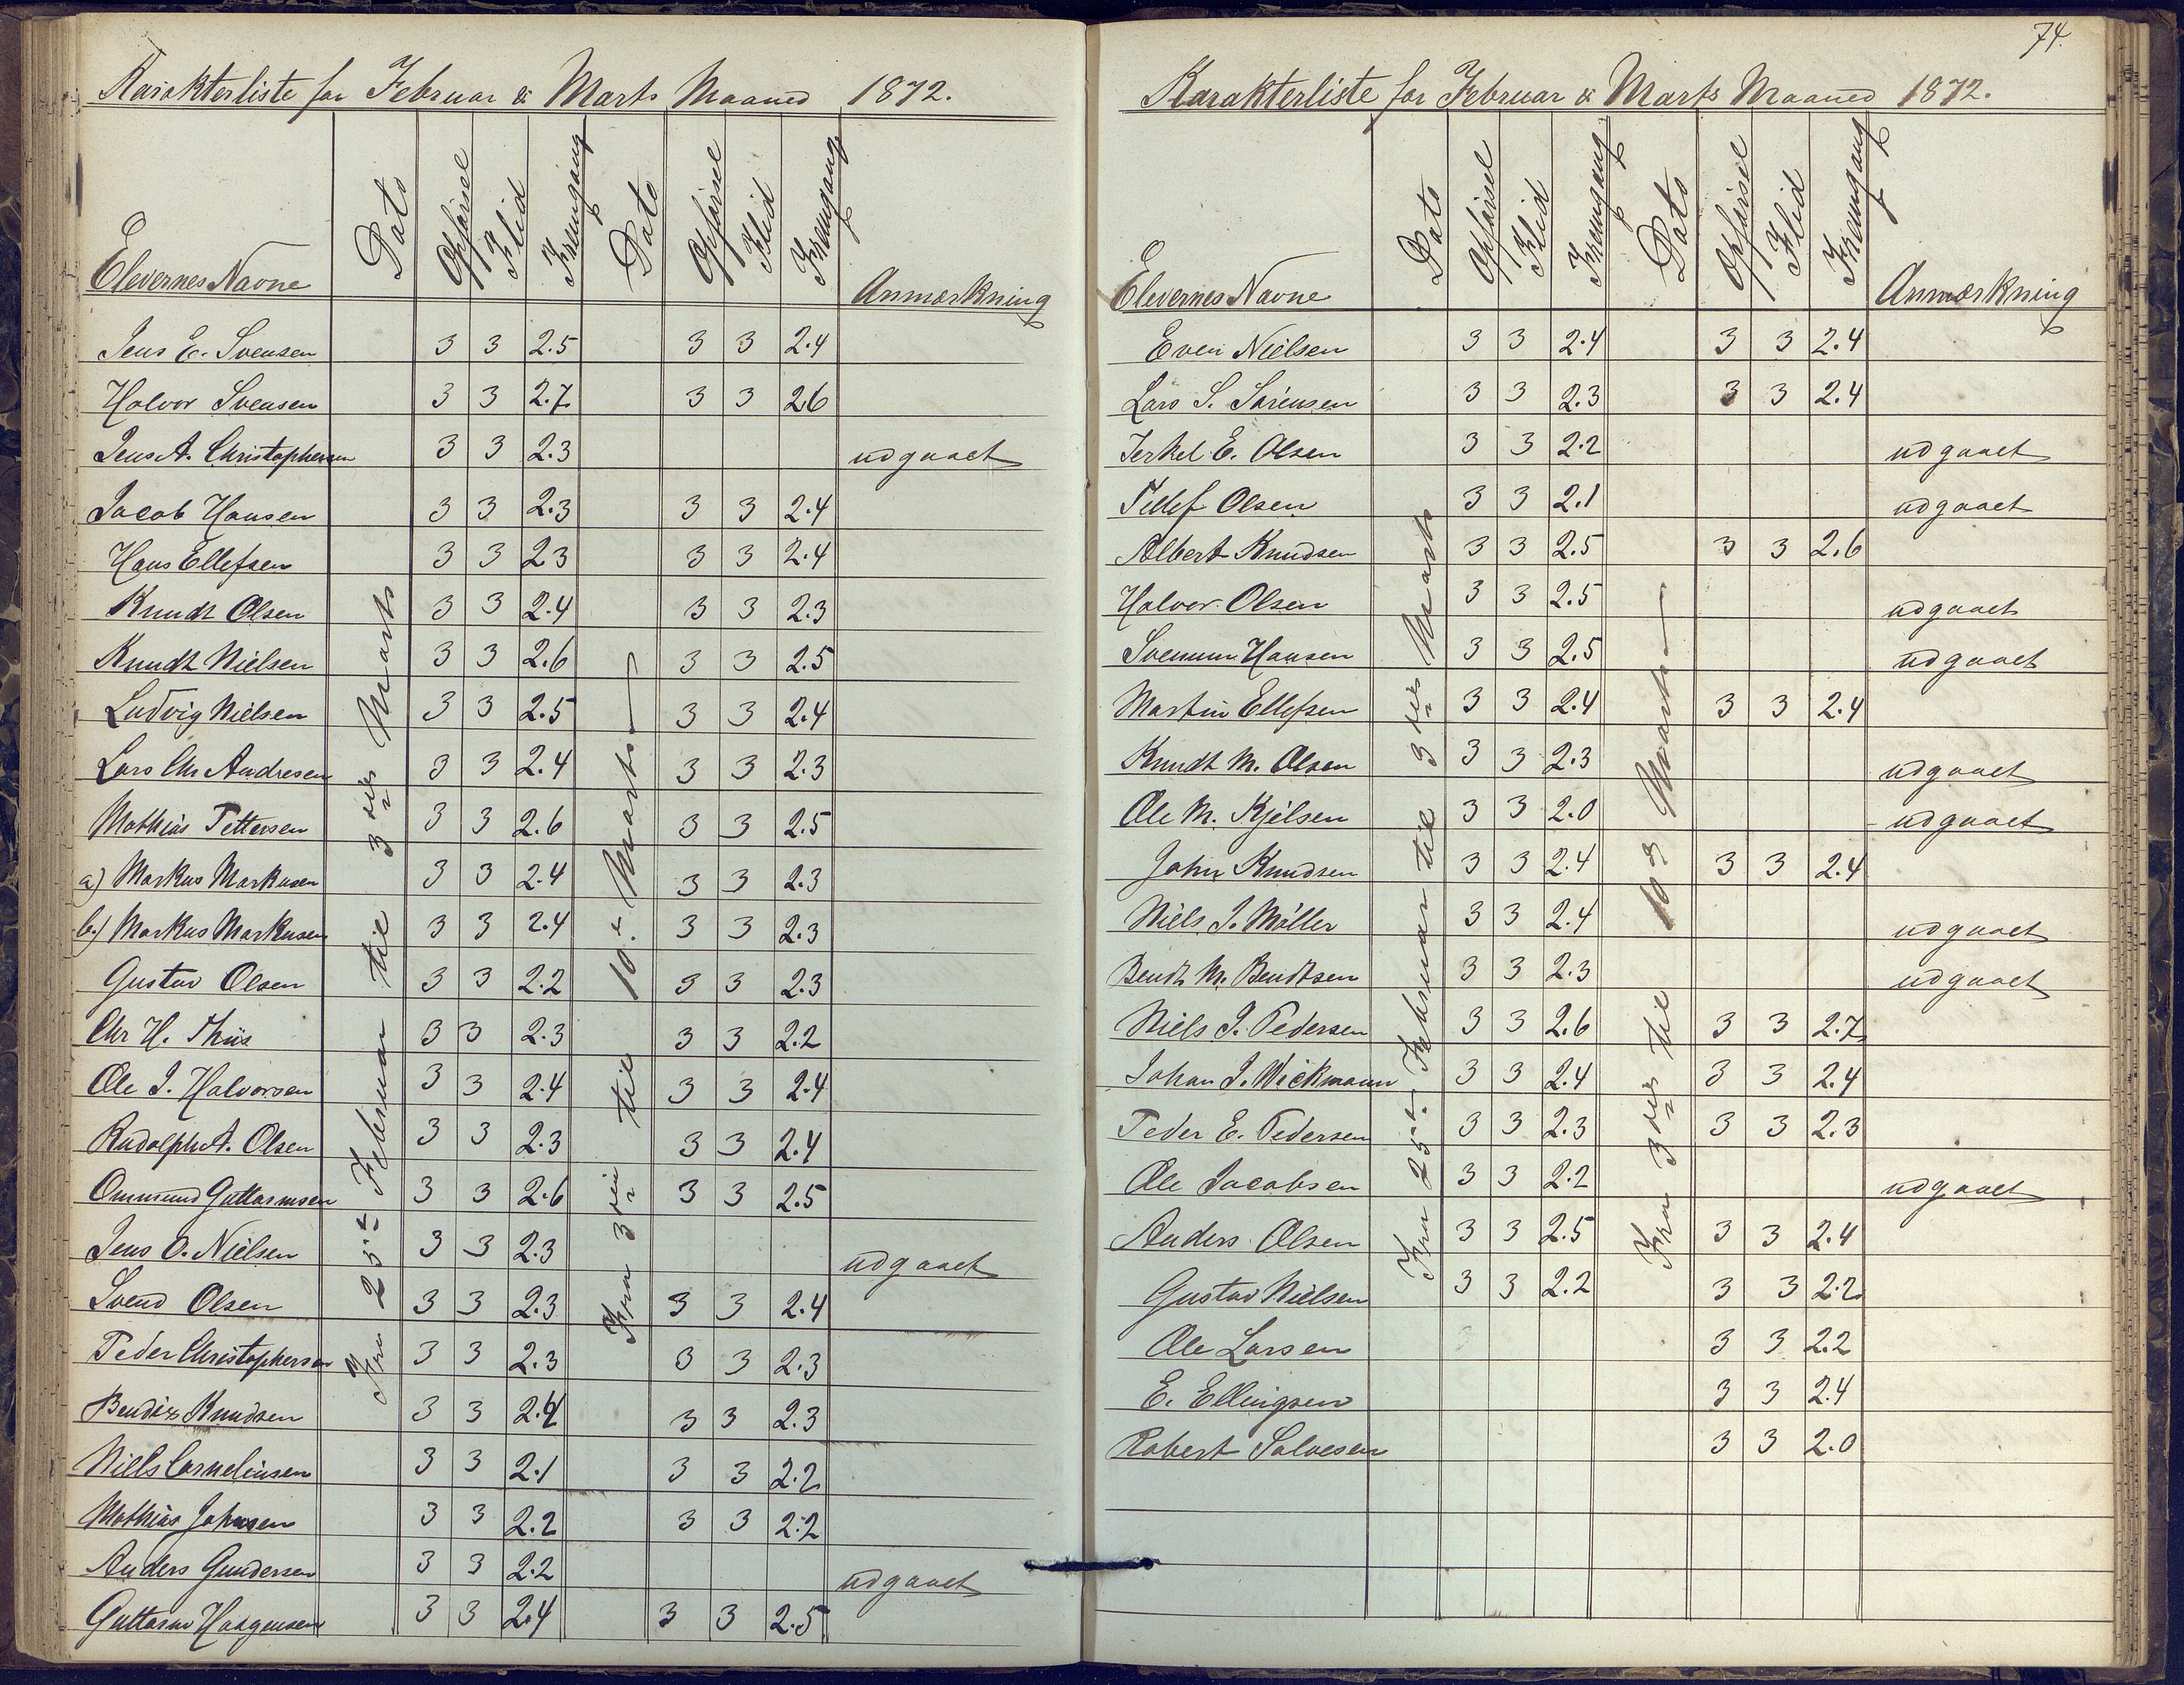 Karakterliste for Februar & Marts Maaned 1872.
Elevernes Navne Dato Opførsel Flid Fremgang Dato Opførsel Flid Fremgang Anmærkning
Fra 25de Februar til 3die Marts
Fra 3die til 10de Marts
Jens E. Svensen 3 3 2.5 3 3 2.4
Halvor Svensen 3 3 2.7 3 3 2.6
Jens A. Christophersen 3 3 2.3 udgaaet
Jacob Hansen 3 3 2.3 3 3 2.4
Hans Ellefsen 3 3 2.3 3 3 2.4
Knudt Olsen 3 3 2.4 3 3 2.3
Knudt Nielsen 3 3 2.6 3 3 2.5
Ludvig Nielsen 3 3 2.5 3 3 2.4
Lars Chr Andresen 3 3 2.4 3 3 2.3
Mathias Pettersen 3 3 2.6 3 3 2.5
a) Markus Markusen 3 3 2.4 3 3 2.3
b.) Markus Markusen 3 3 2.4 3 3 2.3
Gustav Olsen 3 3 2.2 3 3 2.3
Chr H. Thiis 3 3 2.3 3 3 2.2
Ole J. Halvorsen 3 3 2.4 3 3 2.4
Rudolph A. Olsen 3 3 2.3 3 3 2.4
Ommund Guttormsen 3 3 2.6 3 3 2.5
Jens O. Nielsen 3 3 2.3 udgaaet
Svend Olsen 3 3 2.3 3 3 2.4
Peder Christophersen 3 3 2.3 3 3 2.3
Bendix Knudsen 3 3 2.4 3 3 2.3
Niels Corneliusen 3 3 2.1 3 3 2.2
Mathias Johnsen 3 3 2.2 3 3 2.2
Anders Gundersen 3 3 2.2 udgaaet
Guttorm Haagensen 3 3 2.4 3 3 2.5
74.
Karakterliste for Februar & Marts Maaned 1872.
Elevernes Navne Dato Opførsel Flid Fremgang Dato Opførsel Flid Fremgang Anmærkning
Fra 25de Februar til 3die Marts
Fra 3die til 10de Marts
Even Nielsen 3 3 2.4 3 3 2.4
Lars S. Sørensen 3 3 2.3 3 3 2.4
Terkel E. Olsen 3 3 2.2 udgaaet
Tellef Olsen 3 3 2.1 udgaaet
Albert Knudsen 3 3 2.5 3 3 2.6
Halvor Olsen 3 3 2.5 udgaaet
Svenum Hansen 3 3 2.5 udgaaet
Martin Ellefsen 3 3 2.4 3 3 2.4
Knudt M. Olsen 3 3 2.3 udgaaet
Ole M. Kjelsen 3 3 2.0 udgaaet
John Knudsen 3 3 2.4 3 3 2.4
Niels J. Møller 3 3 2.4 udgaaet
Bendt M. Bendtsen 3 3 2.3 udgaaet
Niels J. Pedersen 3 3 2.6 3 3 2.7
Johan J. Wickmann 3 3 2.4 3 3 2.4
Peder E. Pedersen 3 3 2.3 3 3 2.3
Ole Jacobsen 3 3 2.2 udgaaet
Anders Olsen 3 3 2.5 3 3 2.4
Gustav Nielsen 3 3 2.2 3 3 2.2
Ole Larsen 3 3 2.2
E. Ellingsen 3 3 2.4
Robert Salvesen 3 3 2.0